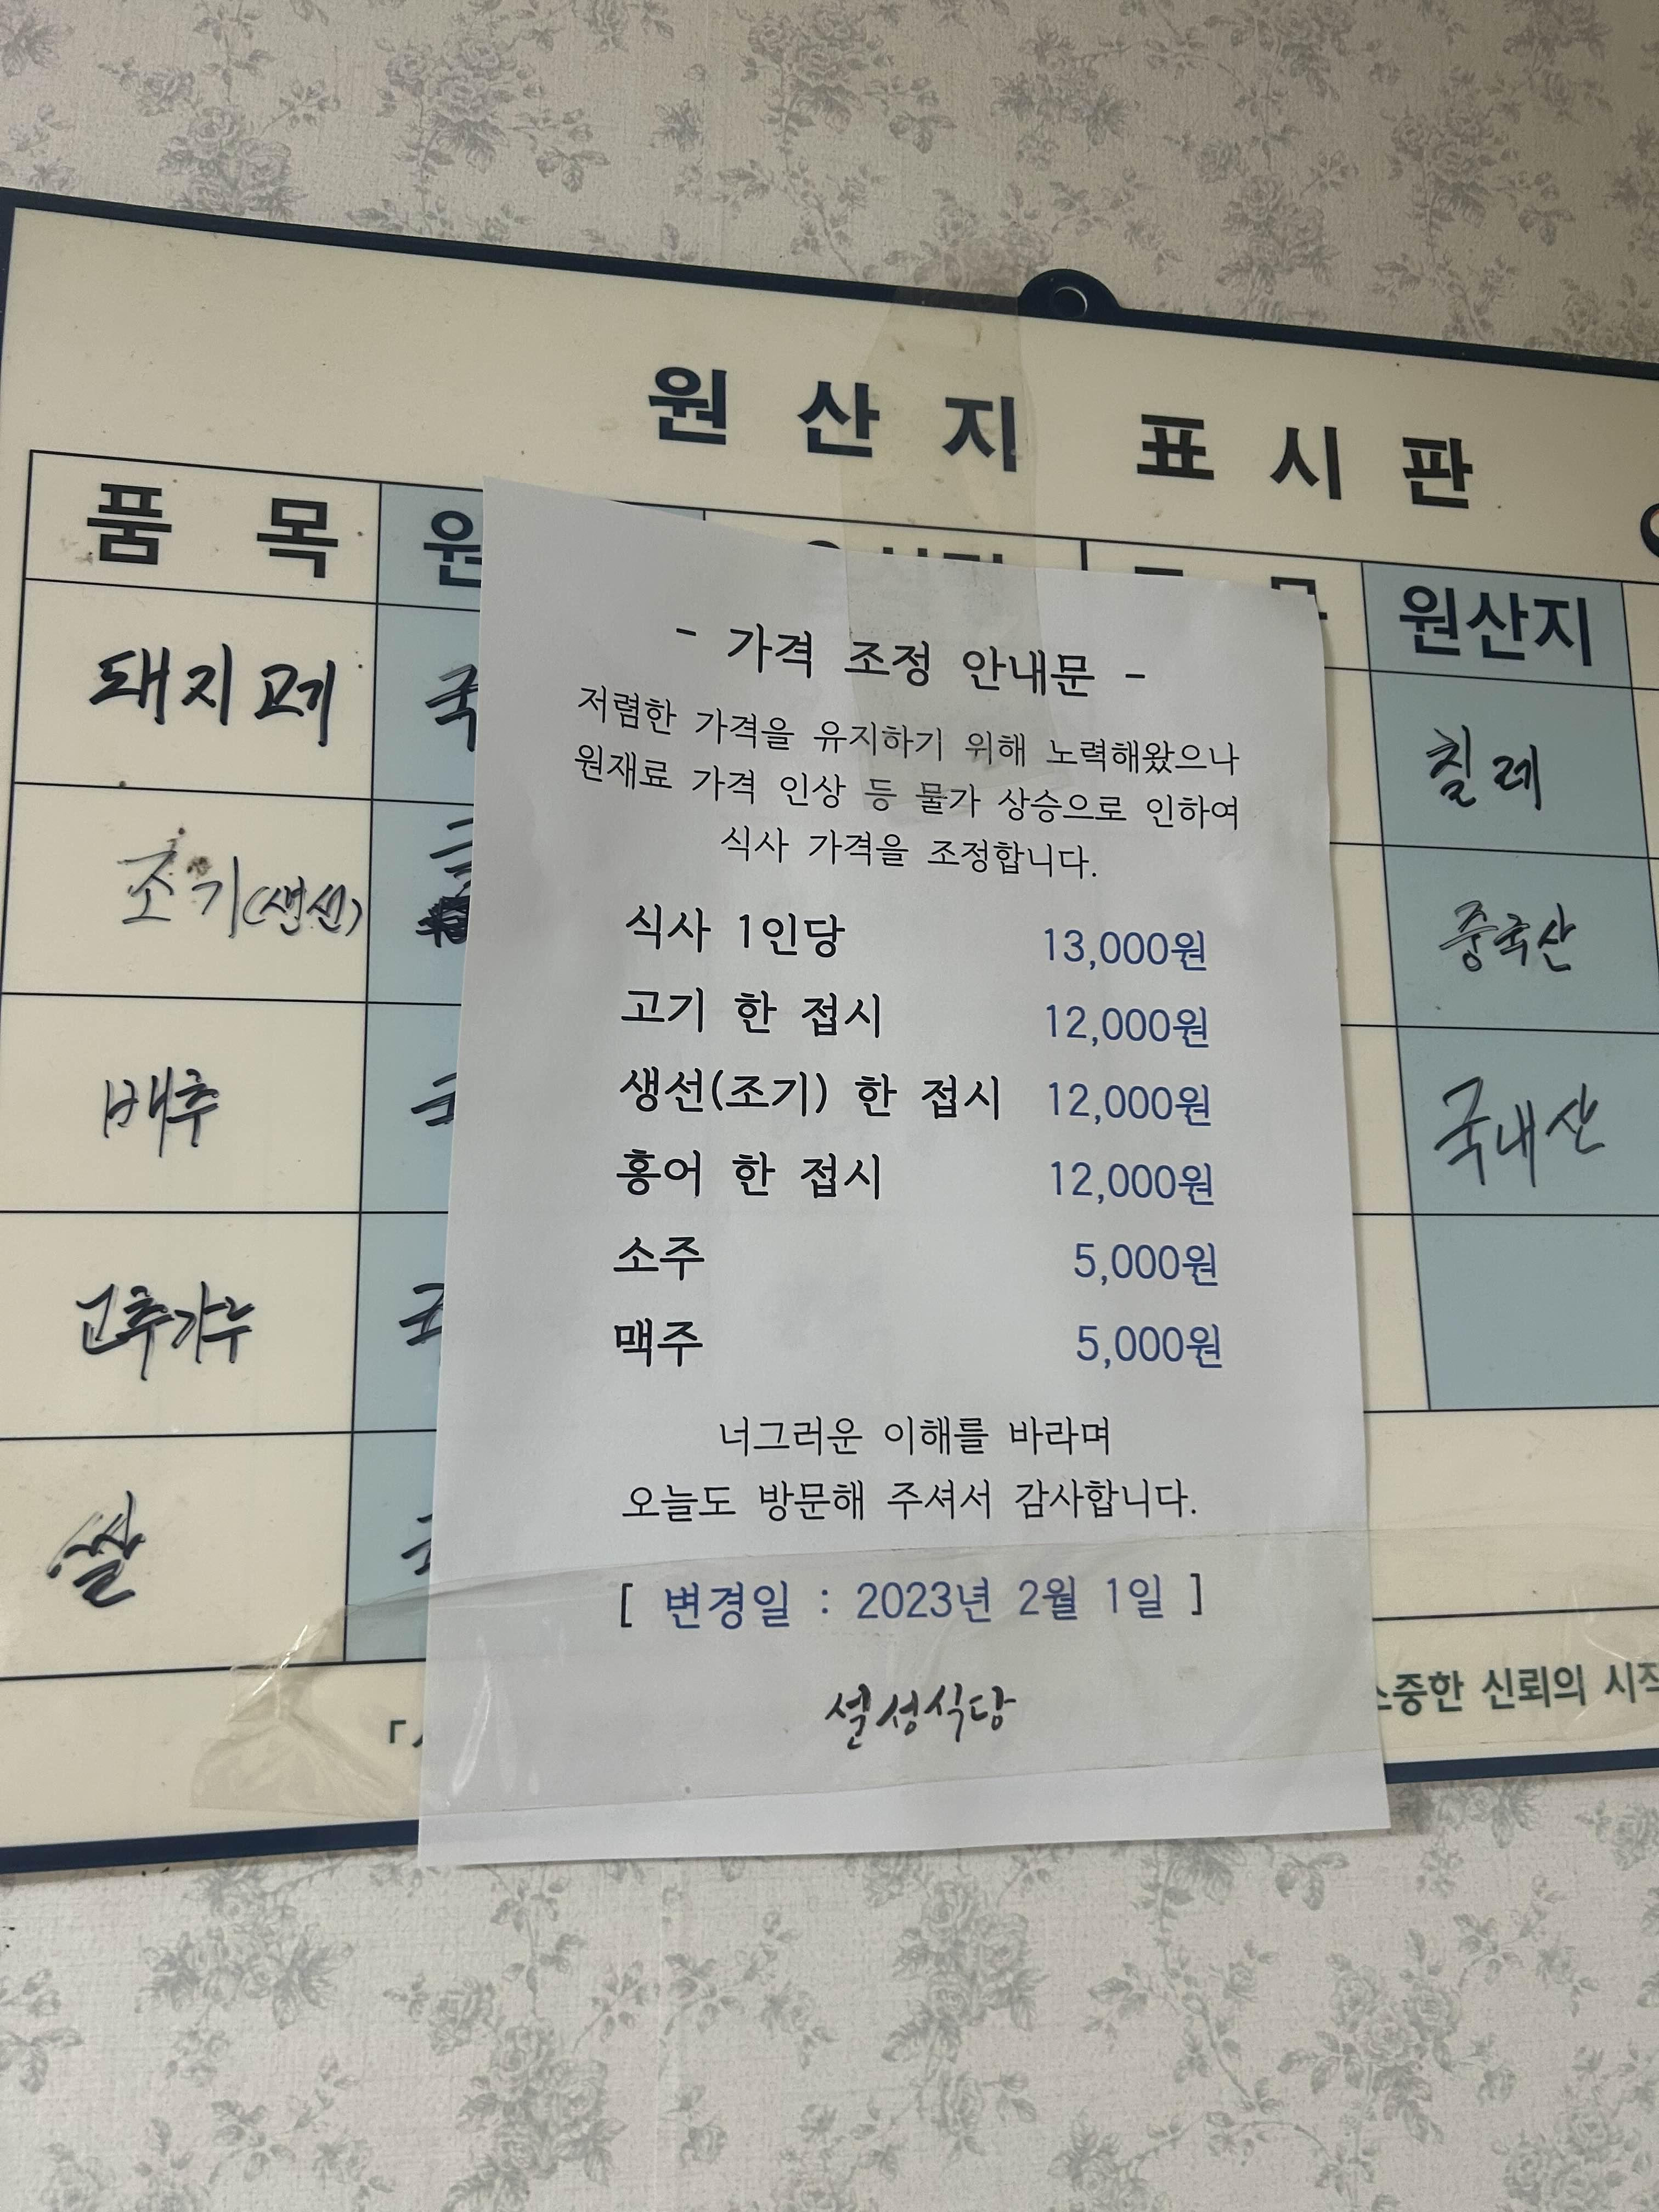 원산지 표시판
품목
원산지
돼지고기
칠레
조기(생선)
중국산
배추
국내산
고추가루
쌀
- 가격 조정 안내문 -
저렴한 가격을 유지하기 위해 노력해왔으나
원재료 가격 인상 등 물가 상승으로 인하여
식사 가격을 조정합니다.
식사 1인당 13,000원
고기 한 접시 12,000원
생선(조기) 한 접시 12,000원
홍어 한 접시 12,000원
소주 5,000원
맥주 5,000원
너그러운 이해를 바라며
오늘도 방문해 주셔서 감사합니다.
[ 변경일 : 2023년 2월 1일 ]
설성식당
신뢰의